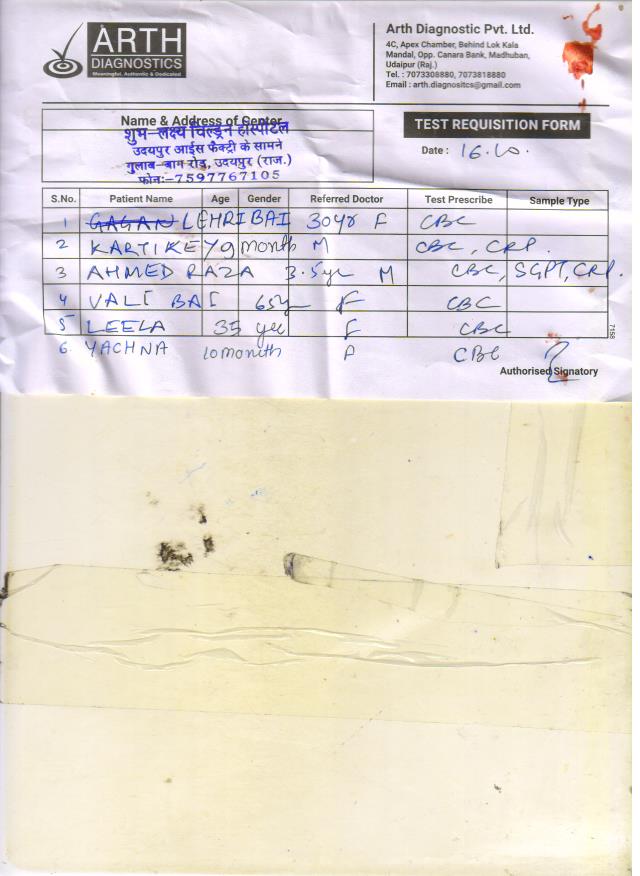 ARTH
DIAGNOSTICS
Meaningful, Authentic & Dedicated
Arth Diagnostic Pvt. Ltd.
4C, Apex Chamber, Behind Lok Kala
Mandal, Opp. Canara Bank, Madhuban,
Udaipur (Raj.)
Tel. : 7073308880, 7073818880
Email : arth.diagnositcs@gmail.com
Name & Address of Center
शुभ-लक्ष्य चिल्ड्रन हॉस्पिटल
उदयपुर आईस फैक्ट्री के सामने
गुलाब-बाग रोड, उदयपुर (राज.)
फोन:-7597767105
TEST REQUISITION FORM
Date : 16.10.
S.No. Patient Name Age Gender Referred Doctor Test Prescribe Sample Type
1 GAGAN LEHRI BAI 30yr F CBC
2 KARTIKEY 9 month M CBC, CRP.
3 AHMED RAZA 3.5yr M CBC, SGPT, CRP.
4 VALI BAI 65yr F CBC
5 LEELA 35 F CBC
6. YACHNA 10 month CBC
7158
Authorised Signatory